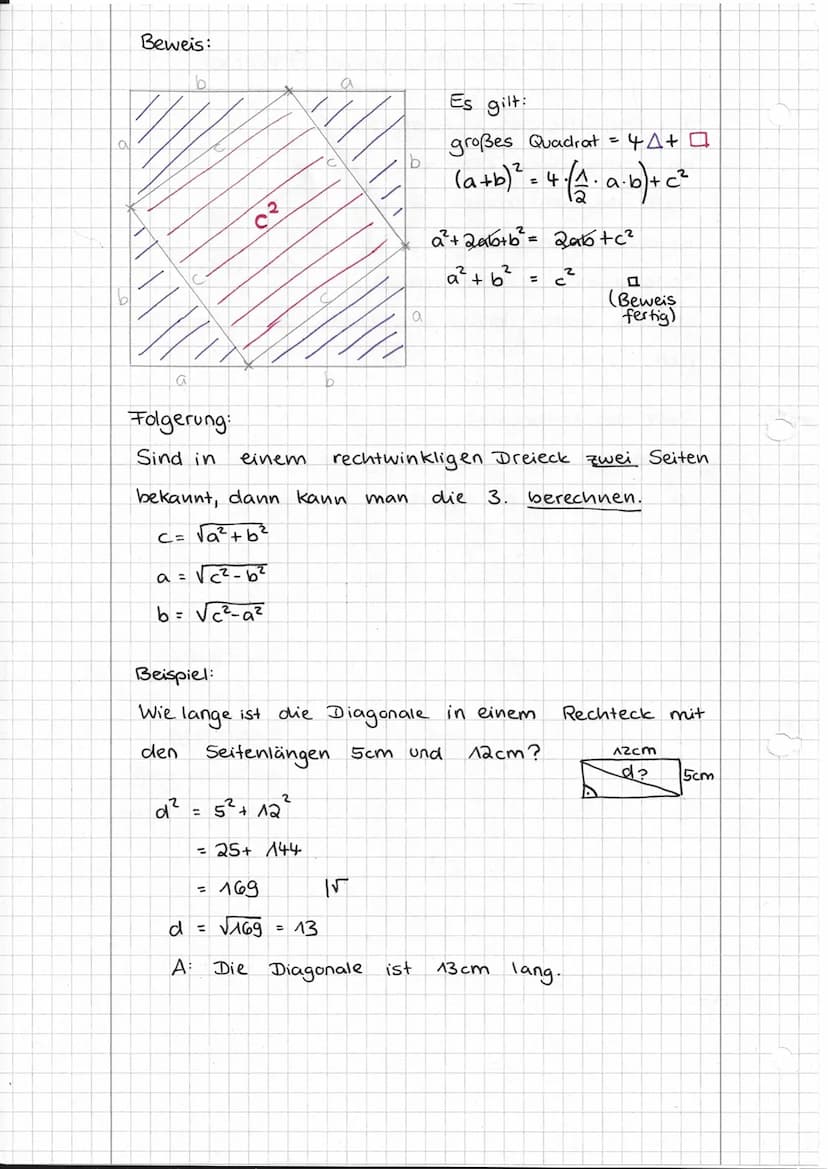 Beweis:
b a
a c c b
c²
c c
b a
a b
Es gilt:
großes Quadrat = 4△+ □
(a+b)² = 4·(1/2 · a·b)+c²
a²+2ab+b² = 2ab+c²
a² + b² = c² □
(Beweis
fertig)
Folgerung:
Sind in einem rechtwinkligen Dreieck zwei Seiten
bekannt, dann kann man die 3. berechnen.
c = √a²+b²
a = √c²-b²
b = √c²-a²
Beispiel:
Wie lange ist die Diagonale in einem Rechteck mit
den Seitenlängen 5cm und 12cm?
12cm
d? 5cm
d² = 5²+ 12²
= 25+ 144
= 169 |√
d = √169 = 13
A: Die Diagonale ist 13cm lang.